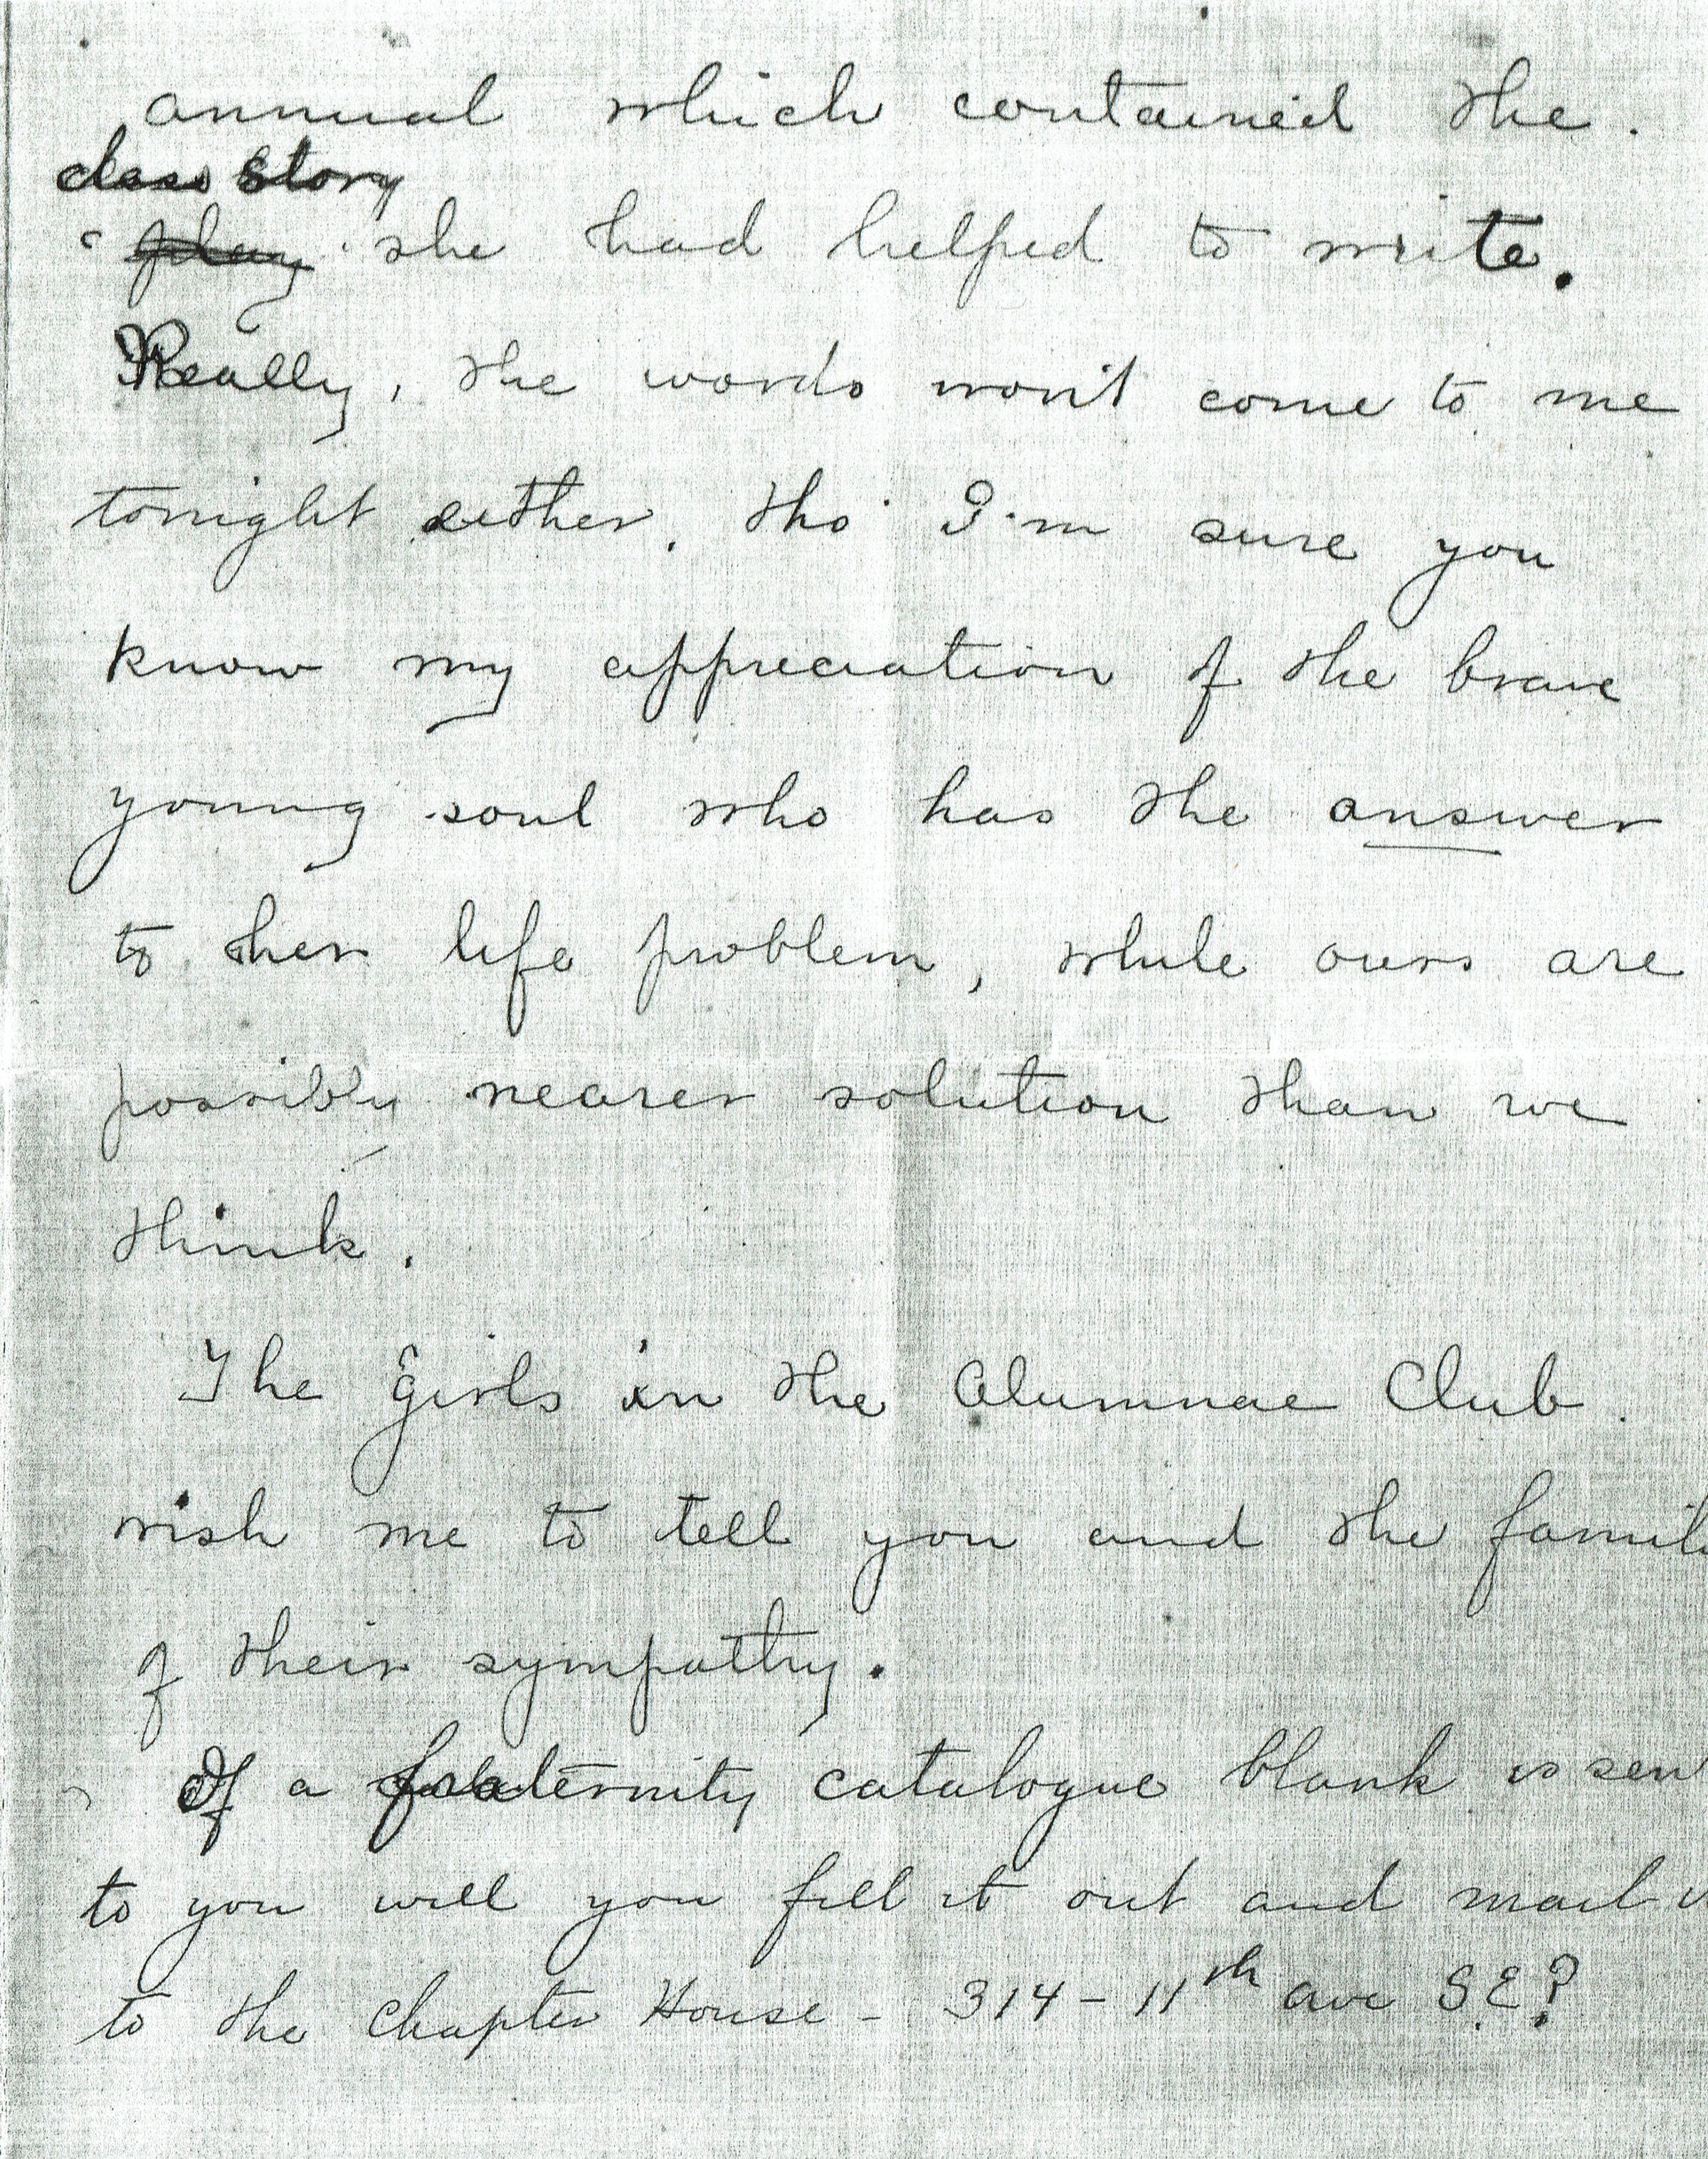 annual which contained the
class story
play she had helped to write.
Really, the words won't come to me
tonight either, tho' I'm sure you
know my appreciation of the brave
young soul who has the answer
to her life problem, while ours are
possibly nearer solution than we
think.
The girls in the Alumnae Club
wish me to tell you and the famil
of their sympathy.
If a fraternity catalogue blank is sen
to you will you fill it out and mail i
to the Chapter House - 314 - 11th ave S.E.?